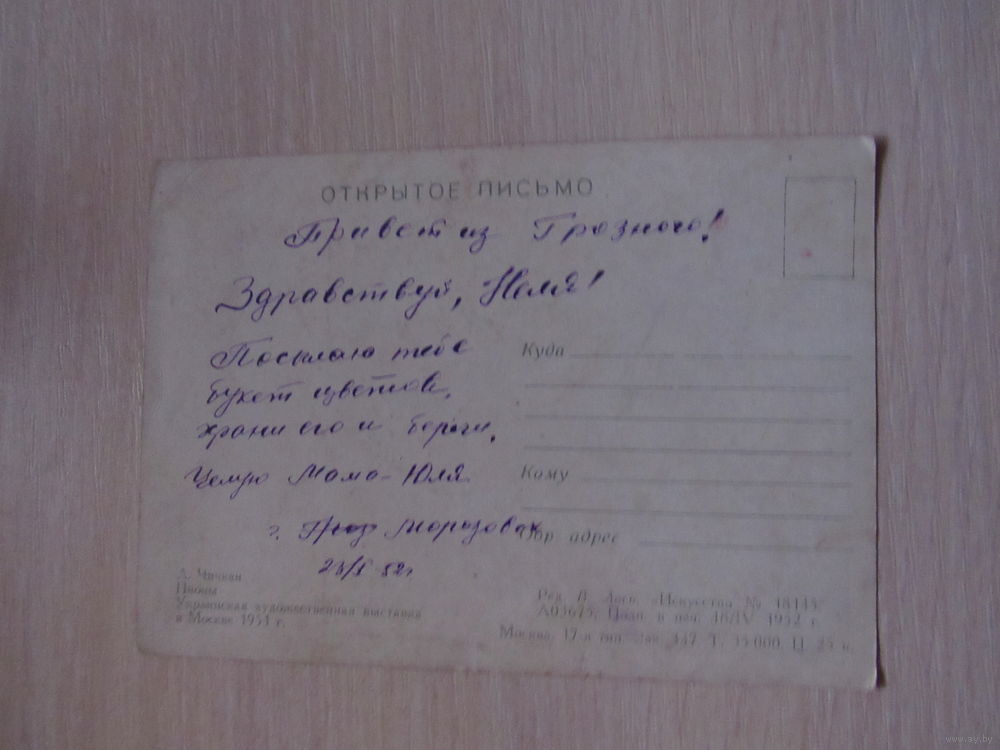 ОТКРЫТОЕ ПИСЬМО
Привет из Грозного!
Здравствуй, Неля!
Посылаю тебе
букет цветов,
храни его и береги.
Целую Мама-Юля
г. Морозова
52г
Куда
Кому
Обр. адрес
Л. Чичкан
Пионы
Украинская художественная выставка
в Москве 1951 г.
Ред. Л. «Искусство» № 18145.
А03675. Подп. к печ. 16/IV 1952 г.
Москва, 17-я тип. Зак. 347 Т. 35 000. Ц. 25 к.
www.ay.by